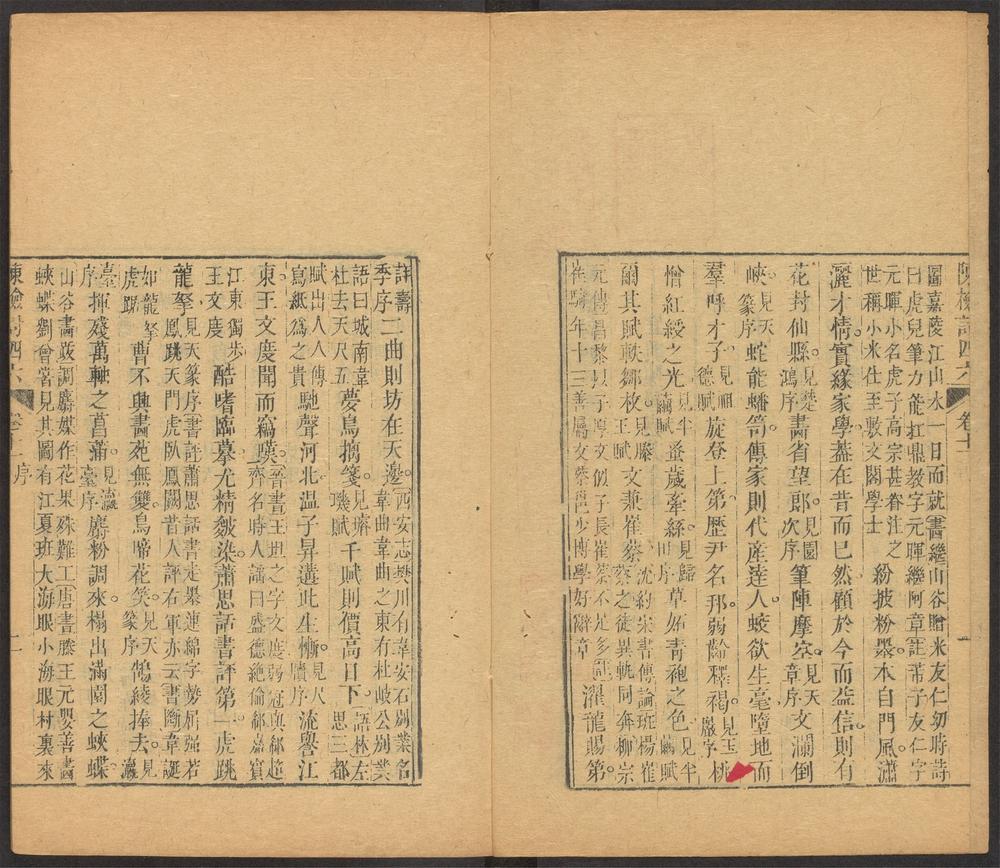 陳檢討四六 卷十一 一
圖嘉陵江山水一日而就書繼山谷贈米友仁初時詩
曰虎兒筆力能扛鼎教字元暉繼阿章註芾子友仁字
元暉小名虎子高宗甚眷注之世稱小米仕至敷文閣學士 紛披粉墨。本自門風。瀟
灑才情。實緣家學。蓋在昔而已然。顧於今而益信。則有
花封仙縣。見楚鴻序 畫省望郎。見園次序 筆陣摩空。見天章序 文瀾倒
峽。見天篆序 蛇能蟠笥。傳家則代產達人。蛟欲生毫。墮地而
羣呼才子。見麗德賦 旋登上第。歷尹名邦。弱齡釋褐。見玉巖序 桃
憎紅綬之光。見半繭賦 蚤歲牽絲。見歸田序 草妬青袍之色。見半繭賦
爾其賦軼鄒枚。見滕王賦 文兼崔蔡。沈約宋書傳論班楊崔蔡之徒異軌同奔柳宗
元傳昌黎與子厚文似子長崔蔡不足多也 年十三善屬文蔡邕少博學好辭章 濯龍賜第。
詳壽季序 二曲則坊在天邊。西安志樊川有韋安石別業名韋曲韋曲之東有杜岐公別業
語曰城南韋杜去天尺五 夢鳥摛箋。見璿璣賦 千賦則價高日下。語林左思三都
賦出人人傳寫紙為之貴 馳聲河北。温子昇遘此生慚。見尺牘序 流譽江
東。王文度聞而竊嘆。晉書王坦之字文度弱冠與郗超齊名時人語曰盛德絕倫郗嘉賓
江東獨步王文度 酷嗜臨摹。尤精皴染。蕭思話書評第一。虎跳
龍拏。見天篆序書評蕭思話書走墨連綿字勢屈强若鳳跳天門虎臥鳳闕昔人評右軍亦云書斷韋誕
如龍拏虎踞 曹不興畫苑無雙。鳥啼花笑。見天篆序 鵠綾捧去。見瀛
臺序 揮殘萬軸之菖蒲。見瀛臺序 麝粉調來。榻出滿園之蛺蝶。
山谷畫跋調麝媒作花果殊難工唐書滕王元嬰善畫
蛺蝶劉曾嘗見其圖有江夏班大海眼小海眼村裏來
陳檢討四六 卷十一 序 二